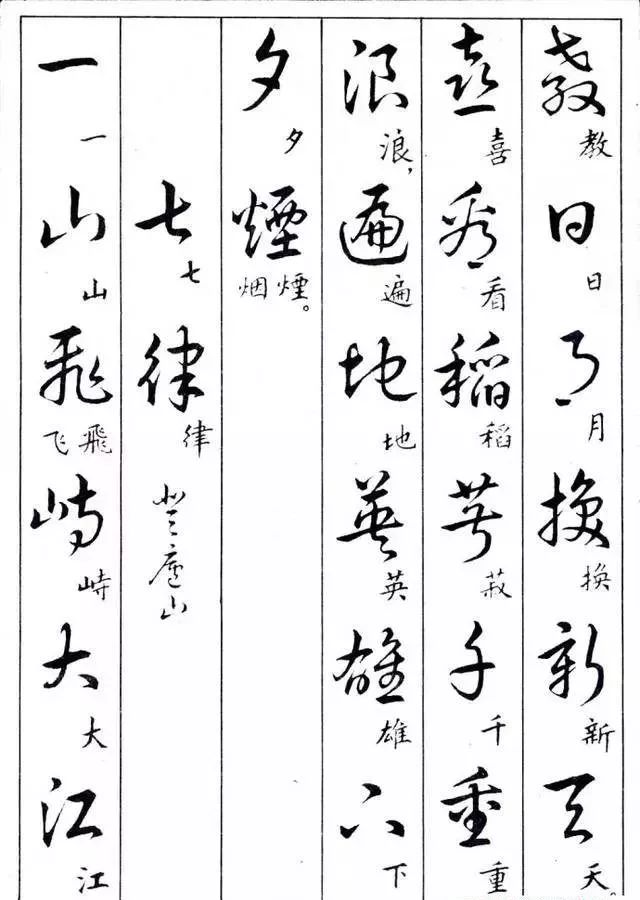 教教日日月月换换新新天天。
喜喜看看稻稻菽菽千千重重
浪浪，遍遍地地英英雄雄下下
夕夕煙煙。烟
七七律律登廬山
一一山山飛飛飞峙峙大大江江